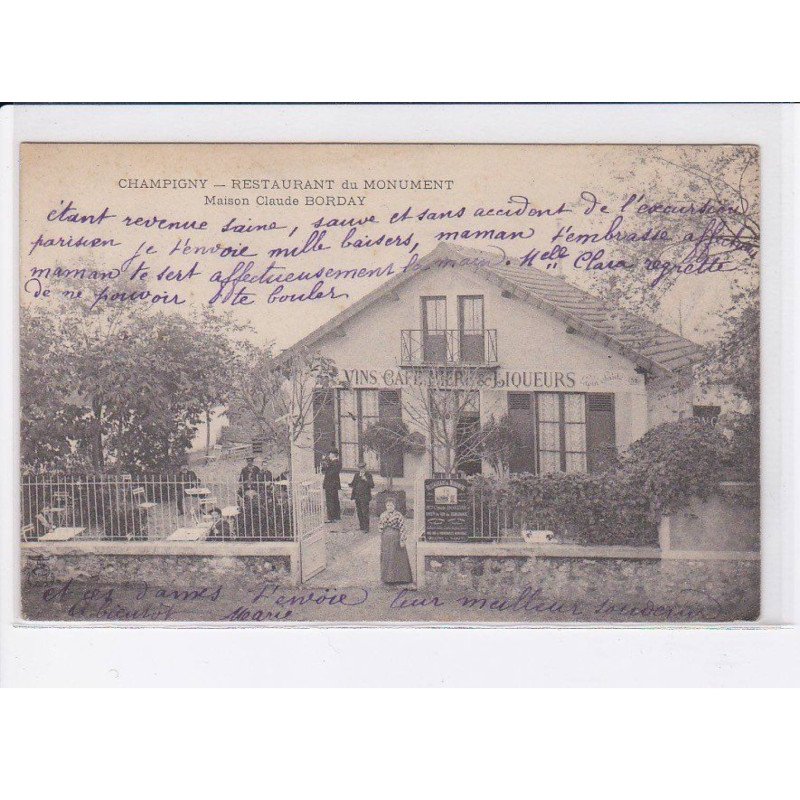 CHAMPIGNY — RESTAURANT du MONUMENT
Maison Claude BORDAY
étant revenue saine, sauve et sans accident de l'excursion
parisien je t'envoie mille baisers, maman t'embrasse affect
maman te sert affectueusement la main. Melle Clara regrette
de ne pouvoir te boular
VINS CAFÉ & LIQUEURS
et ces dames t'envoie leur meilleur souvenir
à bientôt Marie